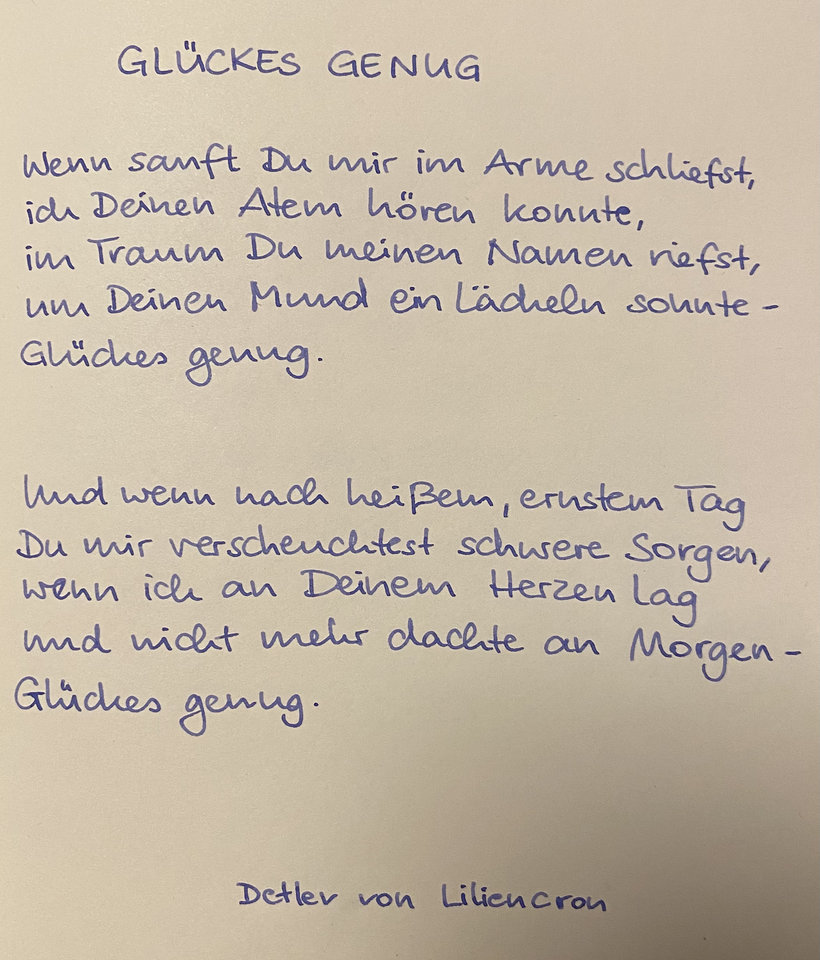 GLÜCKES GENUG
Wenn sanft Du mir im Arme schliefst,
ich Deinen Atem hören konnte,
im Traum Du meinen Namen riefst,
um Deinen Mund ein Lächeln sonnte -
Glückes genug.
Und wenn nach heißem, ernstem Tag
Du mir verscheuchtest schwere Sorgen,
wenn ich an Deinem Herzen lag
und nicht mehr dachte an Morgen -
Glückes genug.
Detlev von Liliencron